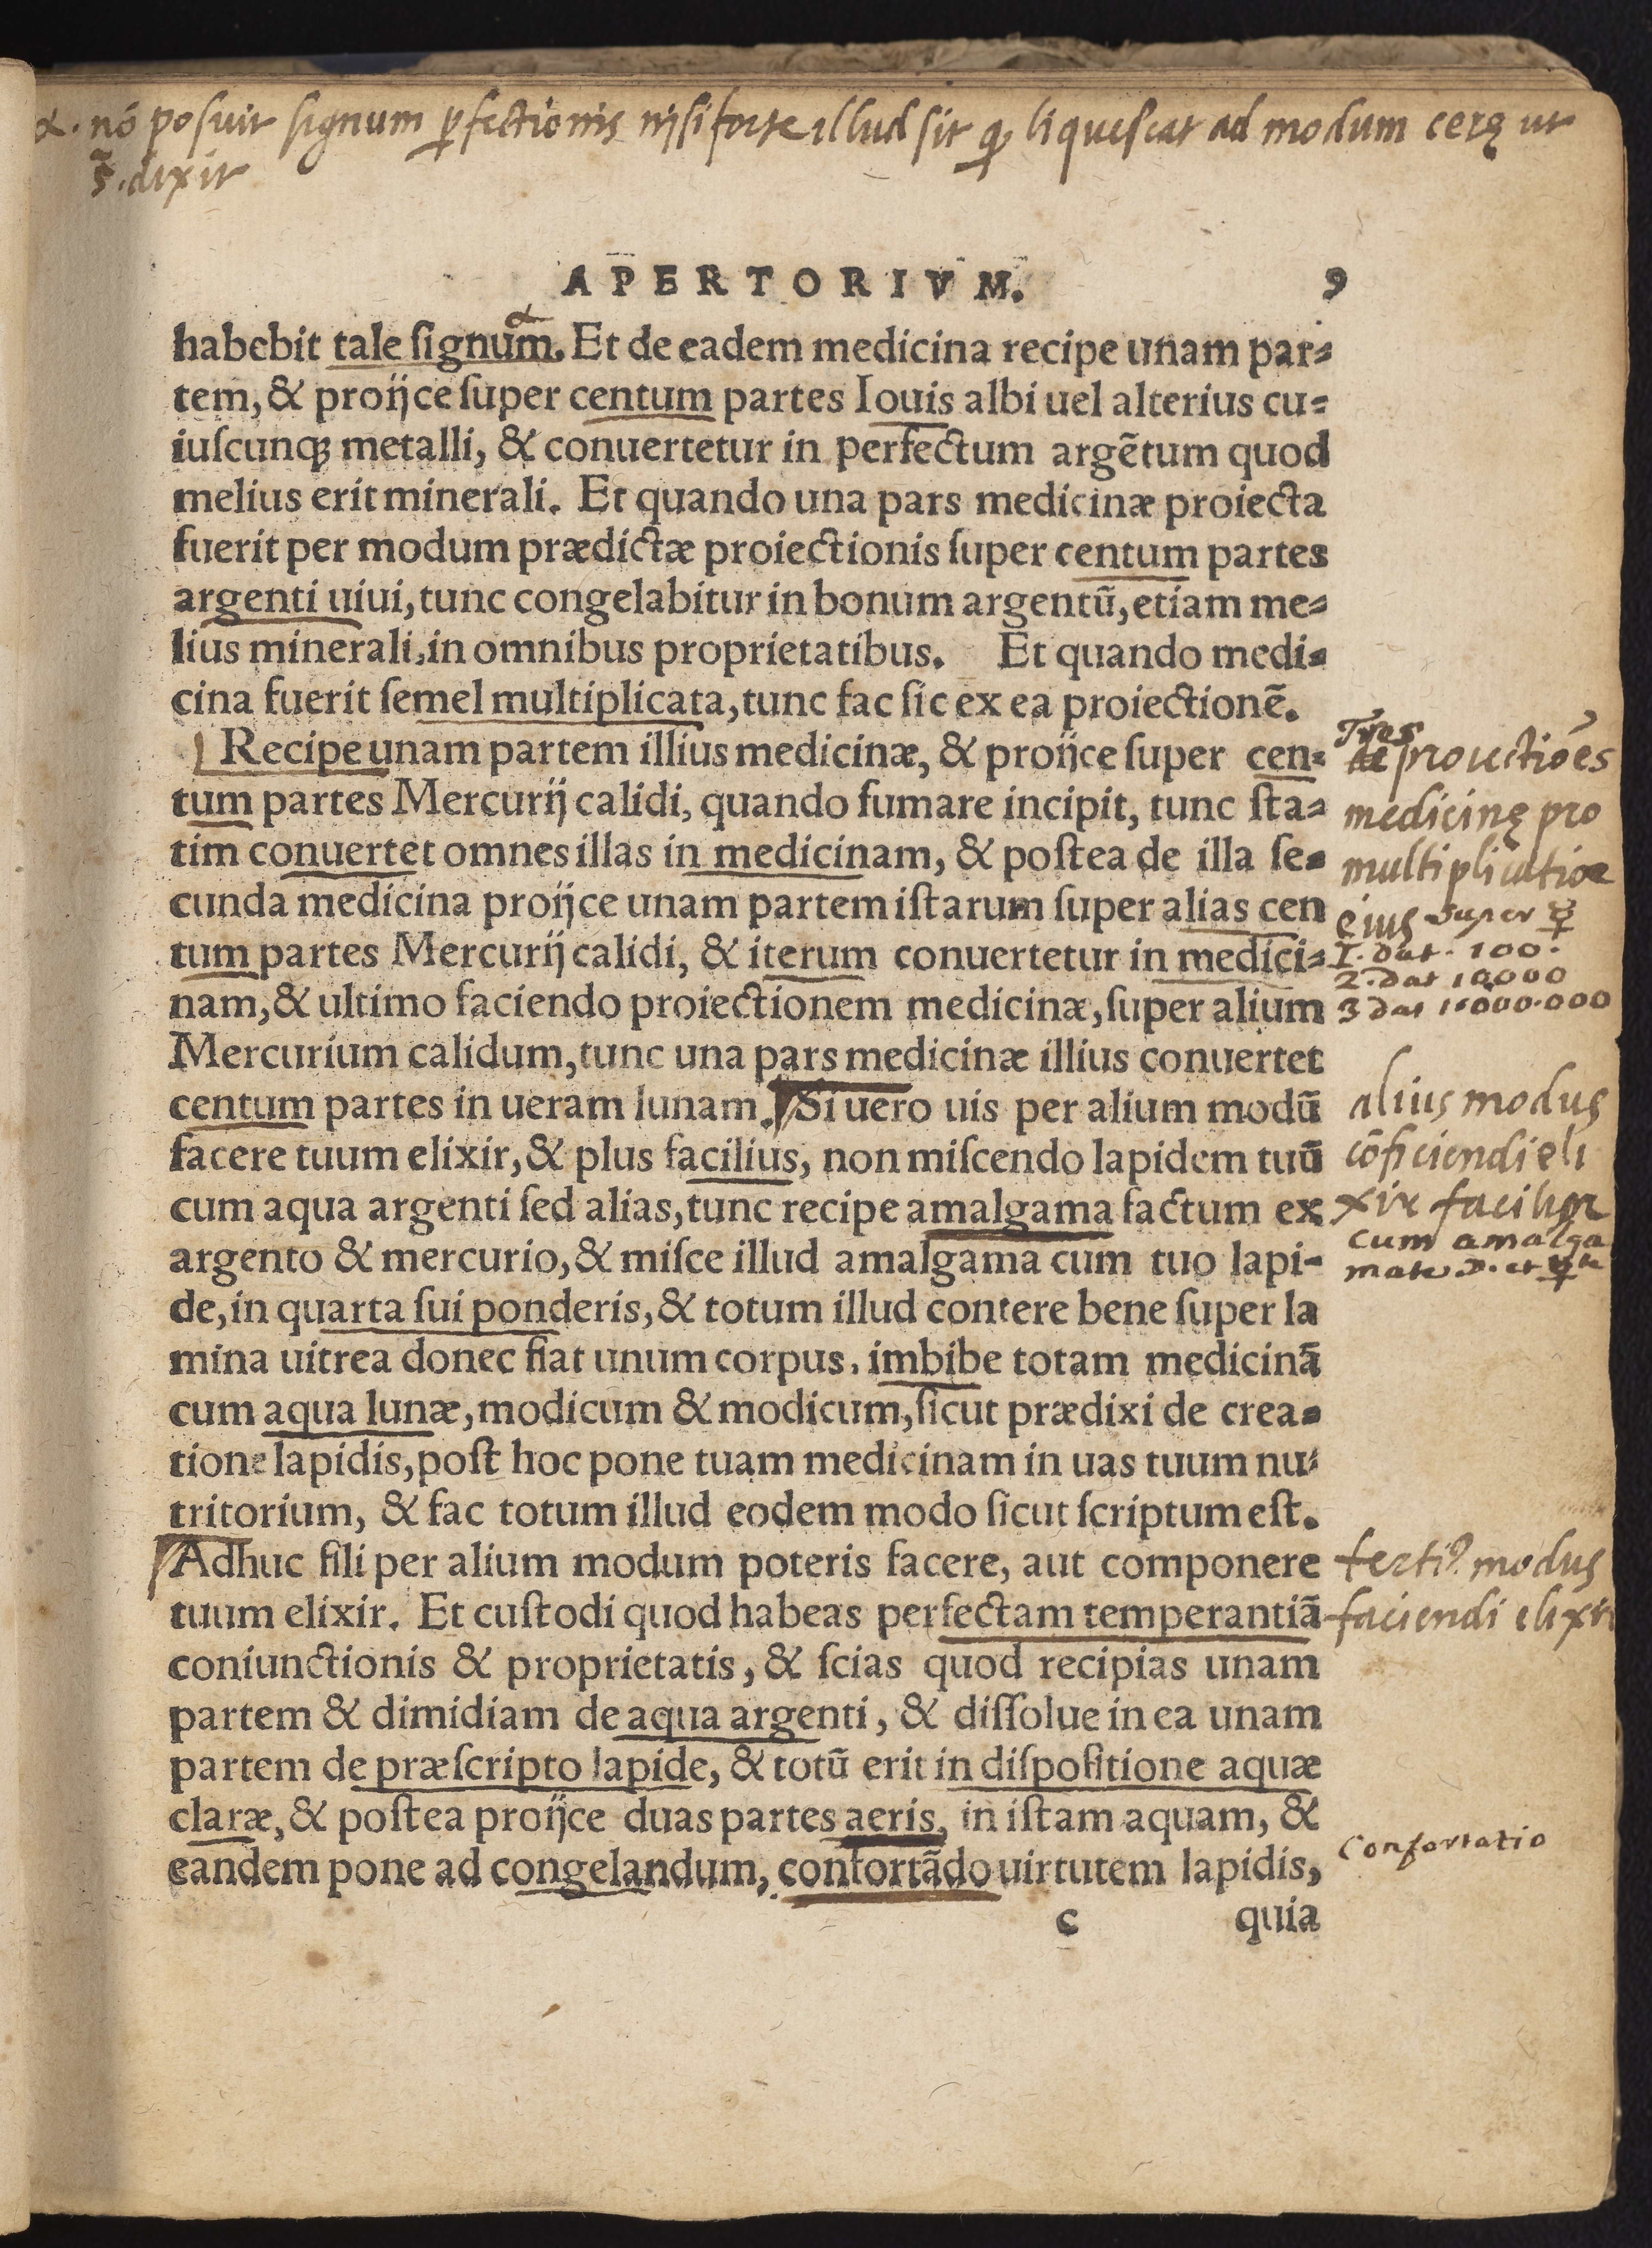 α. nō posuit signum ꝑfectionis nisi forte illud sit ꝙ liquescat ad modum cerę ut
s̃. dixit
APERTORIVM. 9
α
habebit tale ſignum. Et de eadem medicina recipe unam par-
tem, & proijce ſuper centum partes Iouis albi uel alterius cu-
iuſcunq; metalli, & conuertetur in perfectum argẽtum quod
melius erit minerali. Et quando una pars medicinæ proiecta
fuerit per modum prædictæ proiectionis ſuper centum partes
argenti uiui, tunc congelabitur in bonum argentū, etiam me-
lius minerali, in omnibus proprietatibus. Et quando medi-
cina fuerit ſemel multiplicata, tunc fac ſic ex ea proiectionẽ.
Recipe unam partem illius medicinæ, & proijce ſuper cen-
tum partes Mercurij calidi, quando fumare incipit, tunc ſta-
tim conuertet omnes illas in medicinam, & poſtea de illa ſe-
cunda medicina proijce unam partem iſtarum ſuper alias cen
tum partes Mercurij calidi, & iterum conuertetur in medici-
nam, & ultimo faciendo proiectionem medicinæ, ſuper alium
Mercurium calidum, tunc una pars medicinæ illius conuertet
centum partes in ueram lunam. Si uero uis per alium modū
facere tuum elixir, & plus facilius, non miſcendo lapidem tuū
cum aqua argenti ſed alias, tunc recipe amalgama factum ex
argento & mercurio, & miſce illud amalgama cum tuo lapi-
de, in quarta ſui ponderis, & totum illud contere bene ſuper la
mina uitrea donec fiat unum corpus, imbibe totam medicinā
cum aqua lunæ, modicum & modicum, ſicut prædixi de crea-
tione lapidis, poſt hoc pone tuam medicinam in uas tuum nu-
tritorium, & fac totum illud eodem modo ſicut ſcriptum eſt.
Adhuc fili per alium modum poteris facere, aut componere
tuum elixir. Et cuſtodi quod habeas perfectam temperantiā
coniunctionis & proprietatis, & ſcias quod recipias unam
partem & dimidiam de aqua argenti, & diſſolue in ea unam
partem de præſcripto lapide, & totū erit in diſpoſitione aquæ
claræ, & poſtea proijce duas partes aeris, in iſtam aquam, &
eandem pone ad congelandum, confortādo uirtutem lapidis,
c quia
Tres
proiectiōes
medicinę pro
multiplicatioe
eius super ☿
1. dat. 100.
2. dat 10,000
3 dat 1,000.000
alius modus
cōficiendi eli
xir facilior
cum amalga
mate ☽. et ☿
terti⁹ modus
faciendi elixir
Confortatio